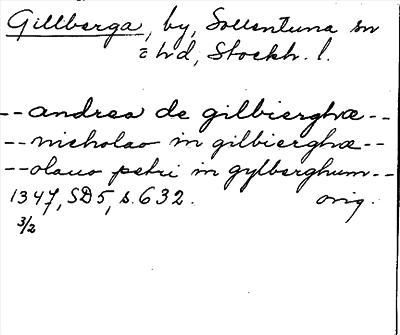 Gillberga, by, Sollentuna sn
o hd, Stockh. l.
-- andrea de gilbierghæ --
-- nicholao in gilbierghæ --
-- olauo petri in gylberghum --
1347, SD5, s. 632. orig.
3/2